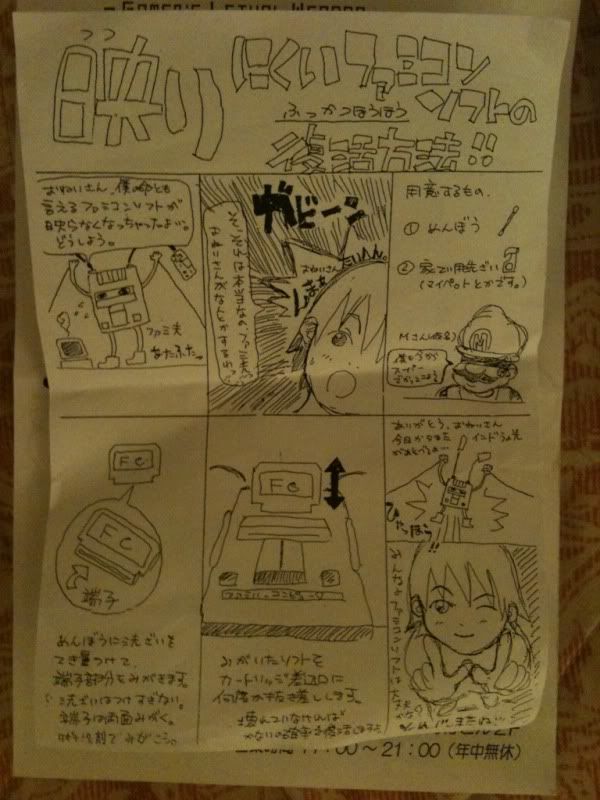 GAMER'S LETHAL WEAPON
うつ
映りにくいファミコンソフトの
ふっかつほうほう
復活方法!!
おねいさん、僕の命とも
言えるファミコンソフトが
映らなくなっちゃったよぃ。
どうしよう。
ファミ夫
あたふた
ガビーン
そ、それは本当なの、ファミ夫。
おねいさんがなんとかするわ
おねいさん
用意するもの、
① めんぼう
② 家てい用洗ざい
(マイペットとかです。)
Mさん(仮名)
僕もうが
スーパー
M
FC
FC
端子
めんぼうに洗ざいを
てき量つけて、
端子部分をみがきます。
洗ざいはつけすぎない。
端子は両面みがく。
でみがこう。
FC
ファミリーコンピュータ
みがいたソフトを
カートリッジ差込口に
何度か抜き差しします。
壊んでいなければ
かなりの確率で復活します
ありがとう、おねいさん
今日から
ひゃっほう
!!
みんなのファミコンソフトは大丈夫かな?
じゃ、またね
00～21:00 (年中無休)